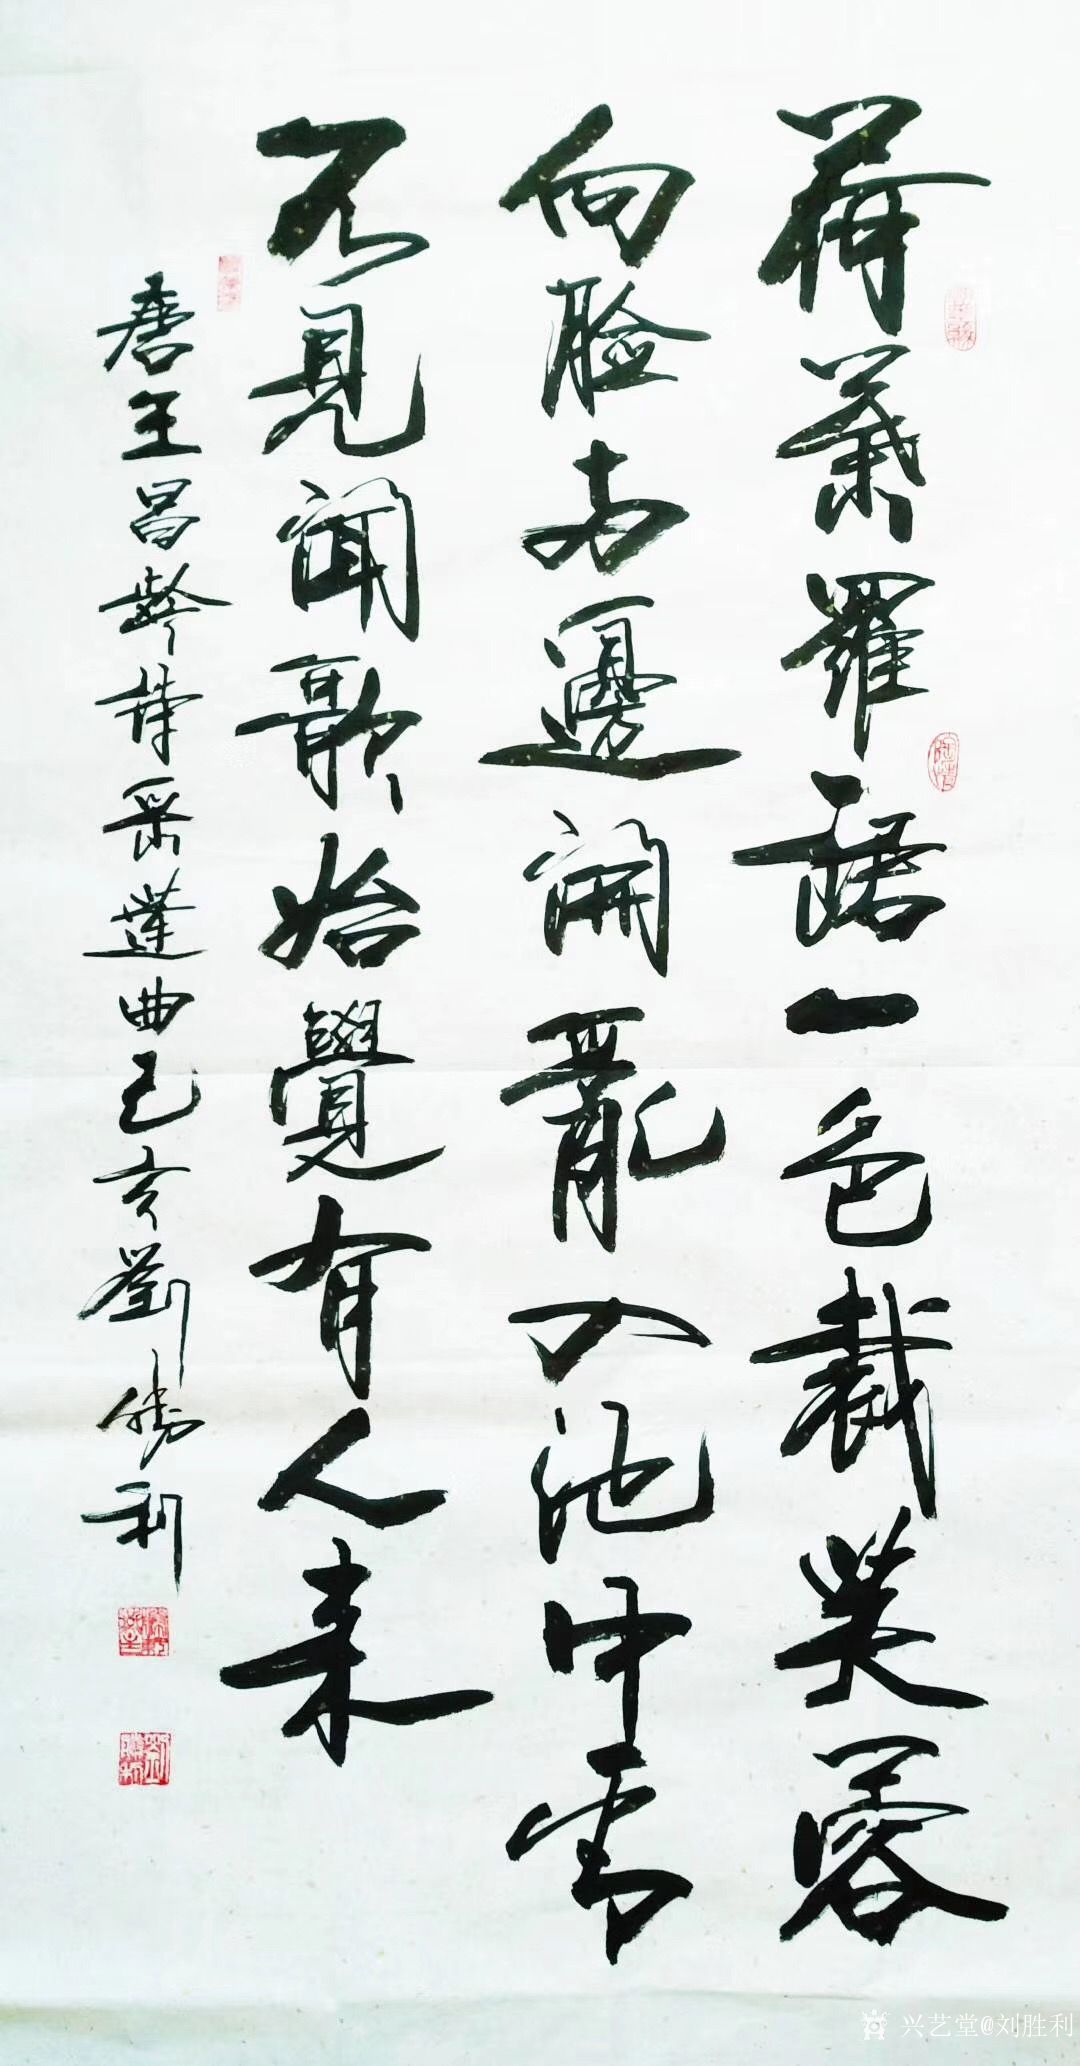 荷葉羅裙一色裁芙蓉
向臉兩邊開亂入池中看
不見聞歌始覺有人来
唐王昌齡詩采蓮曲己亥劉勝利
兴艺堂@刘胜利